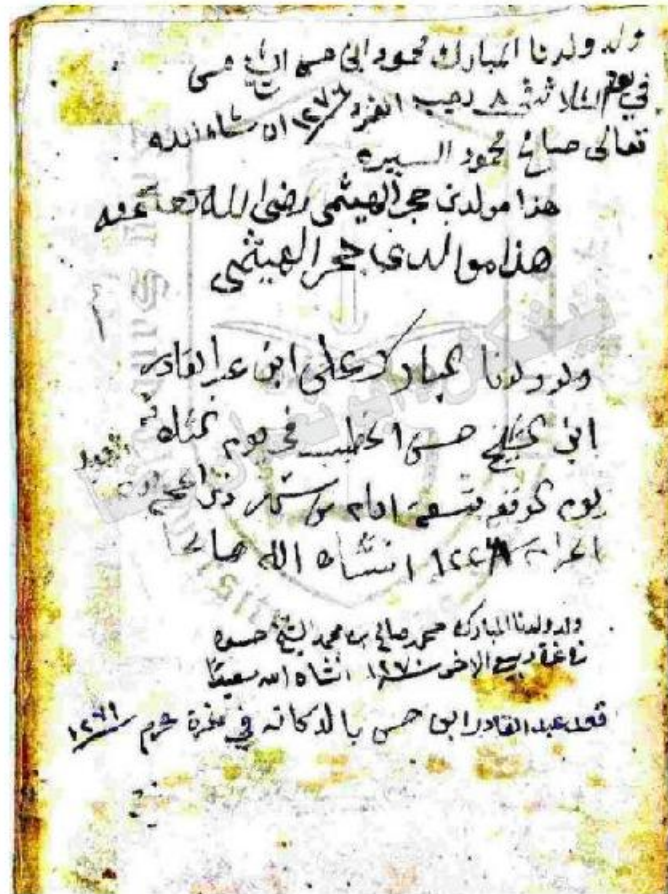 ولد ولدنا المبارك محمود ابن حسن ابن الشيخ حسن
في يوم الثلاثاء ٨ رجب الفرد ١٢٧٦ ان شاء الله
تعالى صالح محمود السيره
هذا مولد بن حجر الهيثمي رضى الله تعا عنه
هذا موالد بن حجر الهيثمي
ولد ولدنا المبارك على ابن عبد القادر
ابن الشيخ حسن الخطيب في يوم
يوم الوقفه تسعة ايام من شهر ذي الحجه
الحرام انشاء الله صالح
ولد ولدنا المبارك محمد صالح بن محمد الشيخ حسن
في غاية ربيع الاخر سنة ١٢٧٠ انشاء الله سعيدا
قعد عبد القادر ابن حسن بالدكانه في غرة محرم ١٢٦١